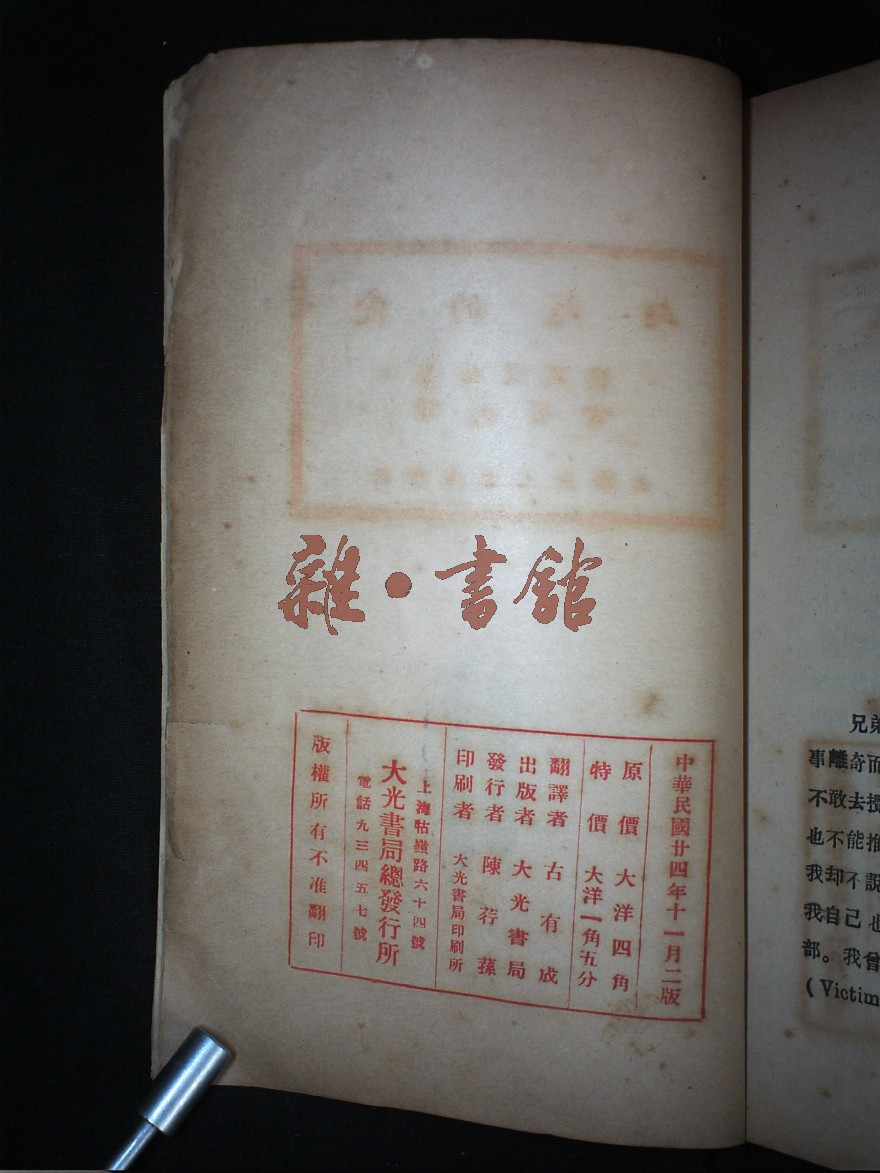 雜·書館
中華民國廿四年十一月二版
原價 大洋四角
特價 大洋一角五分
翻譯者 古有成
出版者 大光書局
發行者 陳荐蓀
印刷者 大光書局印刷所
上海牯嶺路六十四號
大光書局總發行所
電話九三四五七號
版權所有不准翻印
兄弟
事離奇而
不敢去
也不能推
我却不說
我自己也
部。我曾
(Victim